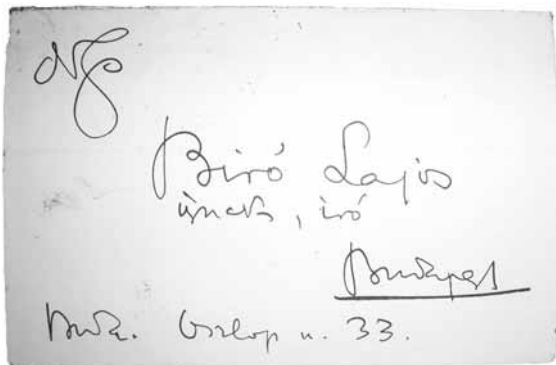 Nfs
Biró Lajos
úrnak, író
Budapest
Buda. Oszlop u. 33.